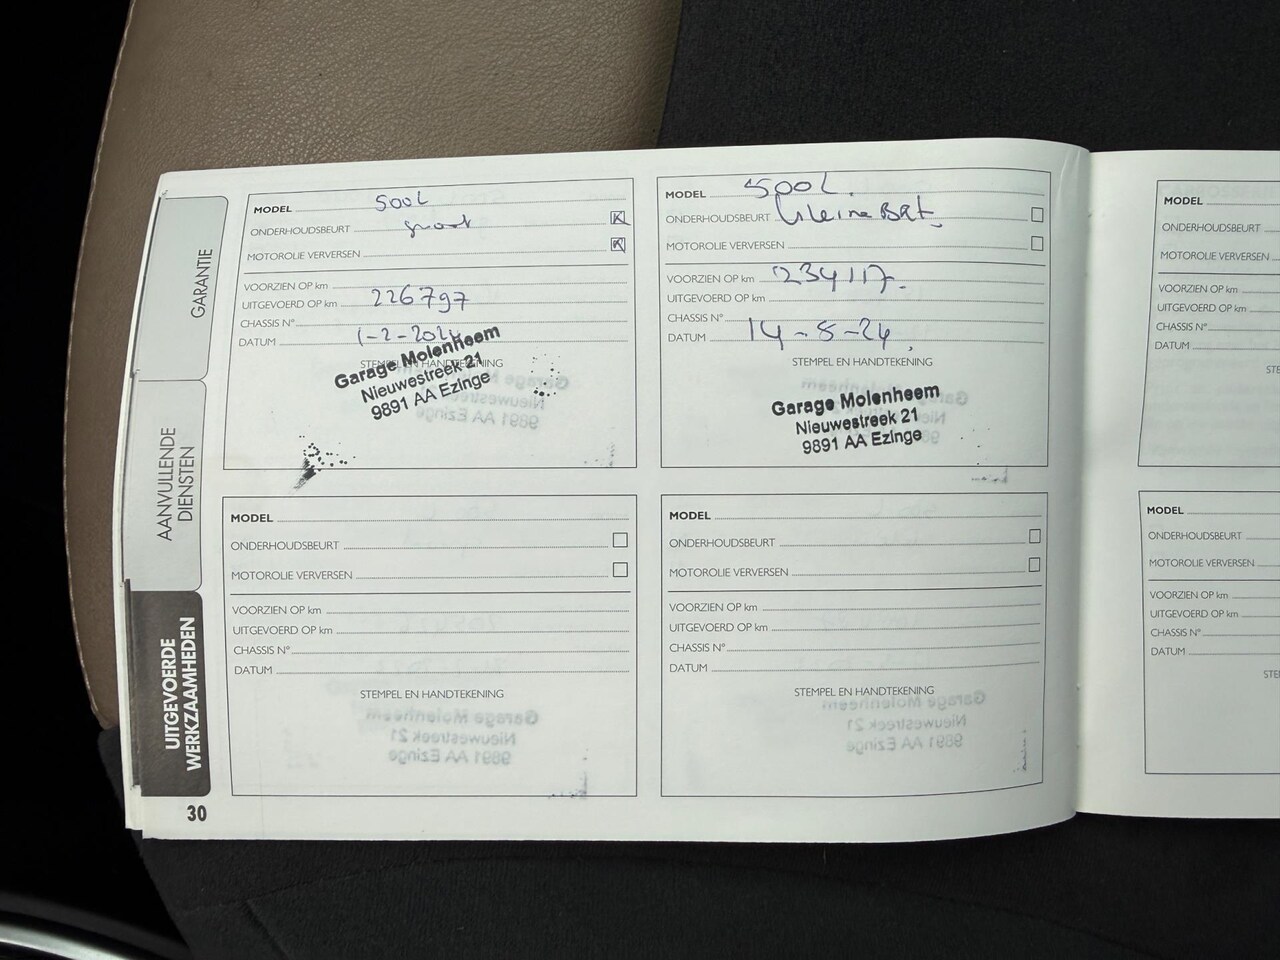 GARANTIE
AANVULLENDE
DIENSTEN
UITGEVOERDE
WERKZAAMHEDEN
30
MODEL 500L
ONDERHOUDSBEURT groot
MOTOROLIE VERVERSEN
VOORZIEN OP km
UITGEVOERD OP km 226797
CHASSIS N°
DATUM 1-2-2024
STEMPEL EN HANDTEKENING
Garage Molenheem
Nieuwestreek 21
9891 AA Ezinge
MODEL 500L.
ONDERHOUDSBEURT kleine BRt
MOTOROLIE VERVERSEN
VOORZIEN OP km 234117.
UITGEVOERD OP km
CHASSIS N°
DATUM 14-8-24
STEMPEL EN HANDTEKENING
Garage Molenheem
Nieuwestreek 21
9891 AA Ezinge
MODEL
ONDERHOUDSBEURT
MOTOROLIE VERVERSEN
VOORZIEN OP km
UITGEVOERD OP km
CHASSIS N°
DATUM
STEMPEL EN HANDTEKENING
MODEL
ONDERHOUDSBEURT
MOTOROLIE VERVERSEN
VOORZIEN OP km
UITGEVOERD OP km
CHASSIS N°
DATUM
STEMPEL EN HANDTEKENING
MODEL
ONDERHOUDSBEURT
MOTOROLIE VERVERSEN
VOORZIEN OP km
UITGEVOERD OP km
CHASSIS N°
DATUM
STE
MODEL
ONDERHOUDSBEURT
MOTOROLIE VERVERSEN
VOORZIEN OP km
UITGEVOERD OP km
CHASSIS N°
DATUM
STE